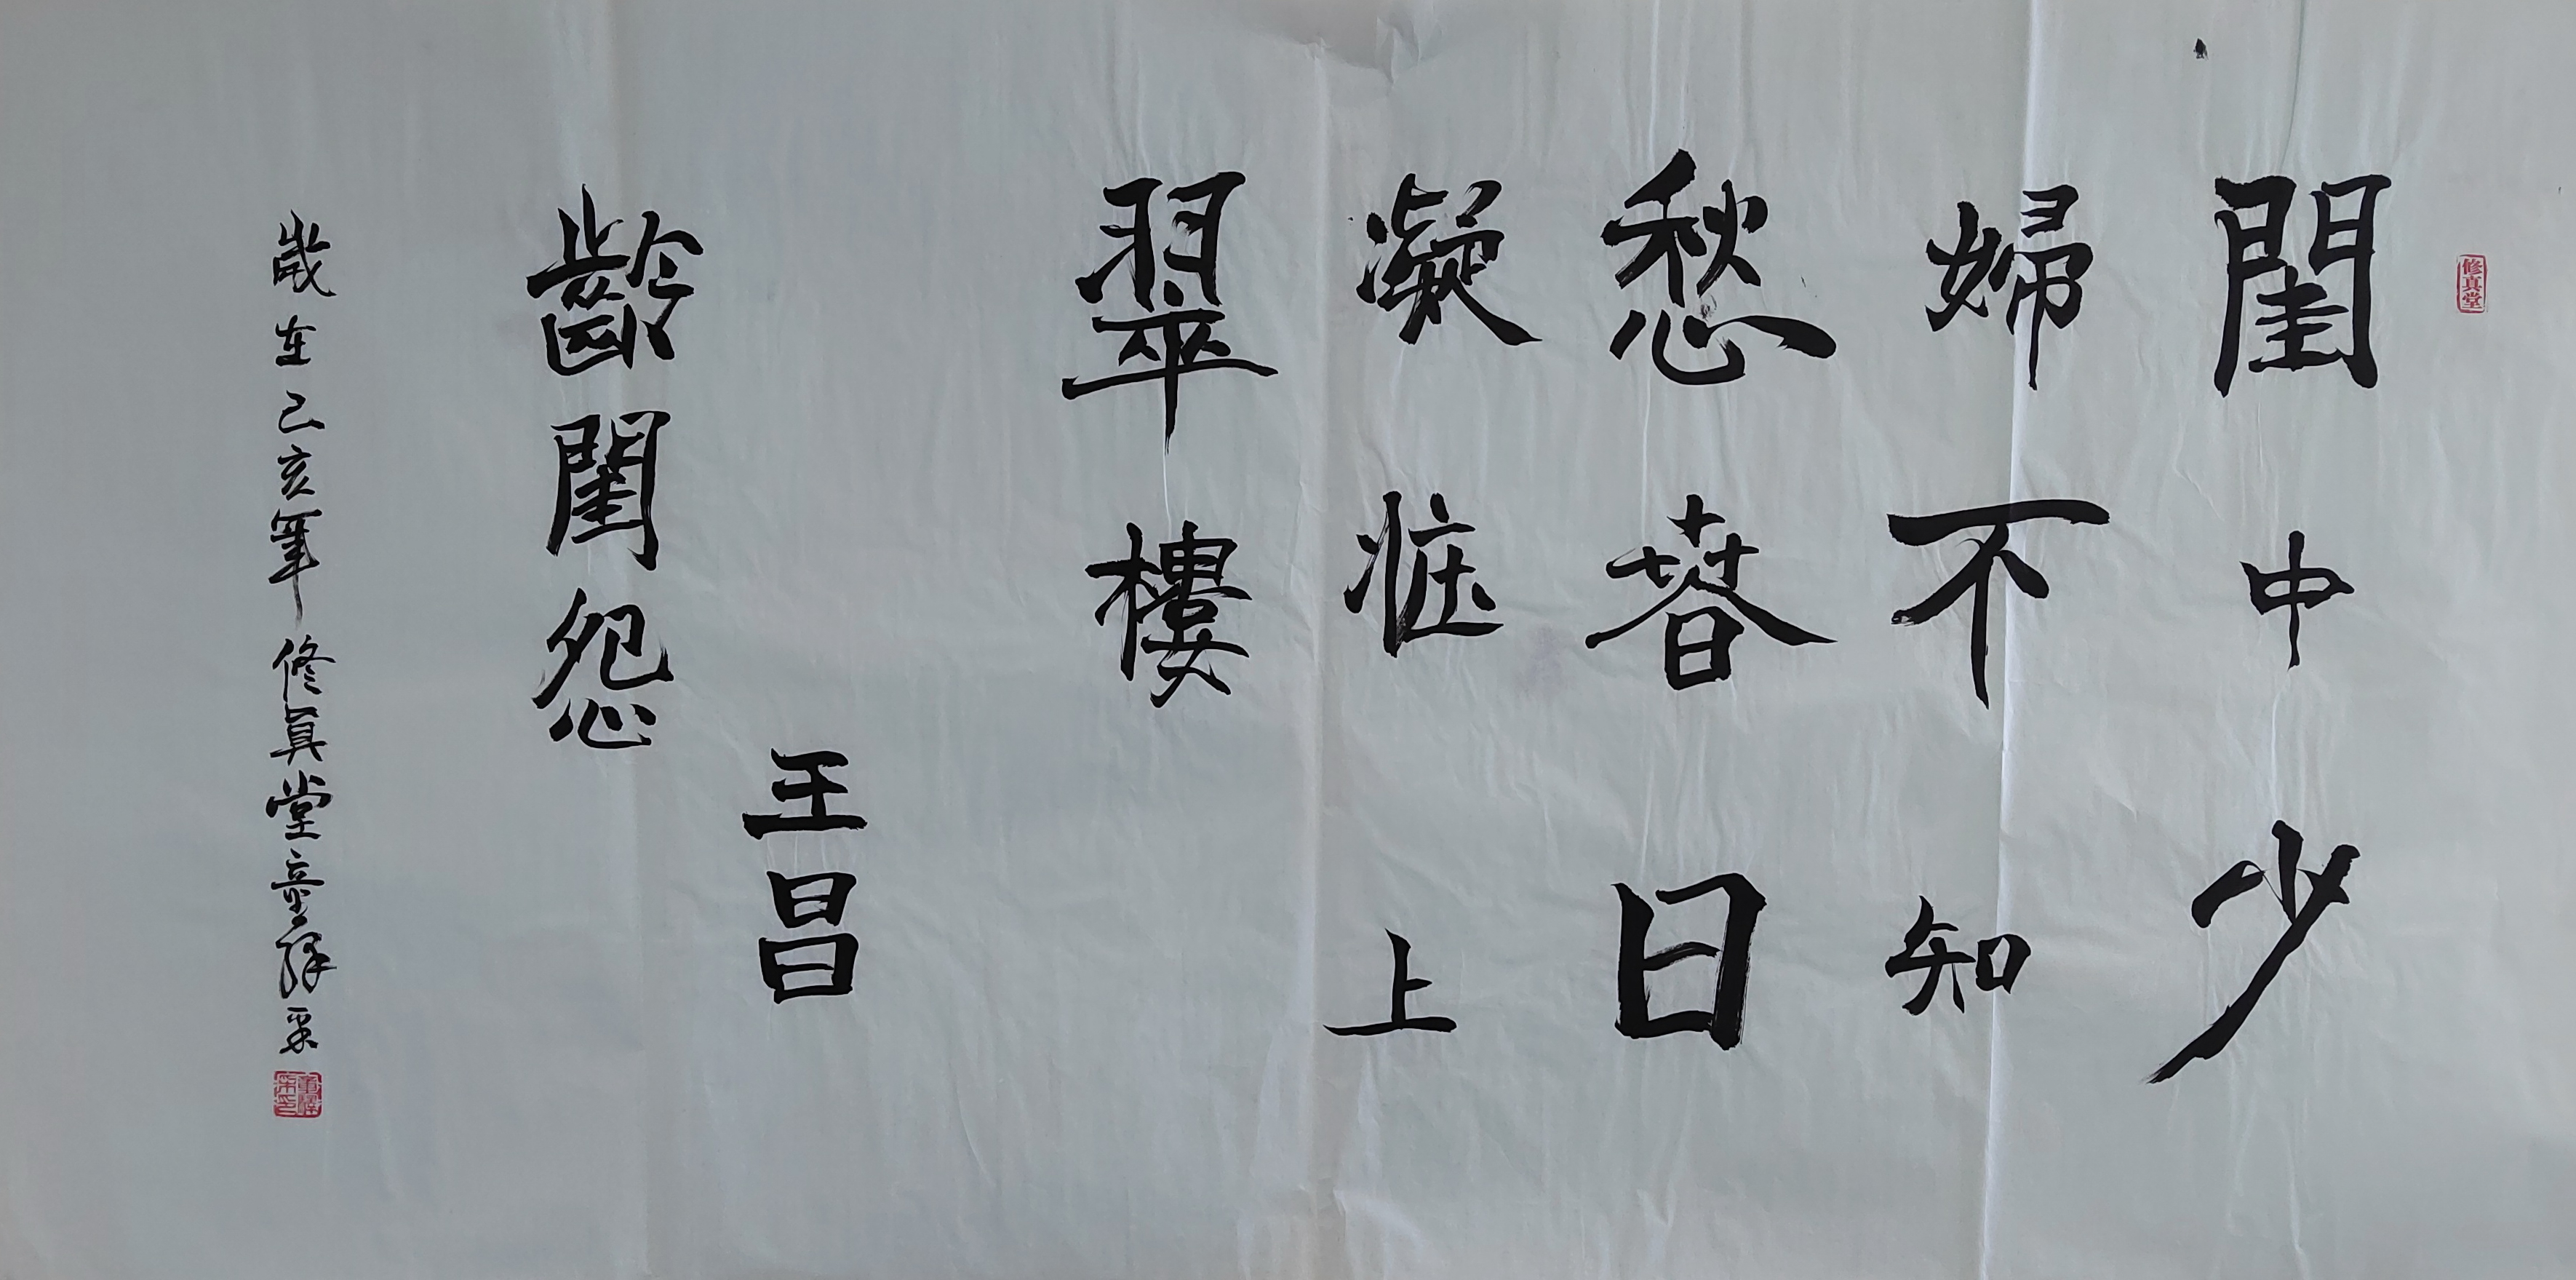 修真堂
閨中少
婦不知
愁春日
凝妝上
翠樓
王昌
齡閨怨
歲在己亥筆修真堂童禄采